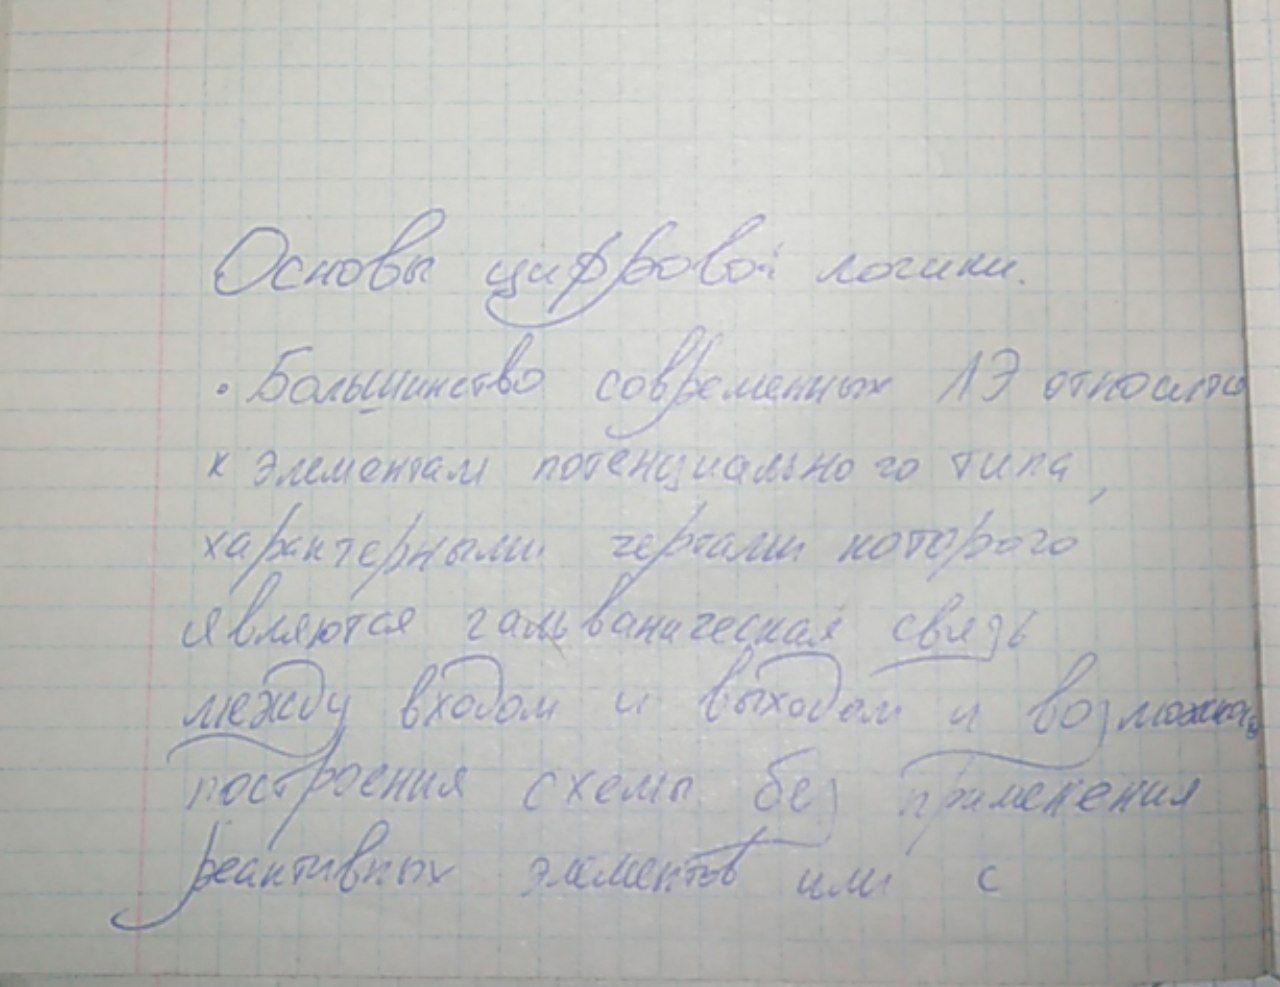 Основы цифровой логики.
• Большинство современных ЛЭ относятся
к элементам потенциального типа,
характерными чертами которого
являются гальваническая связь
между входом и выходом и
построения схемы без применения
реактивных элементов или с